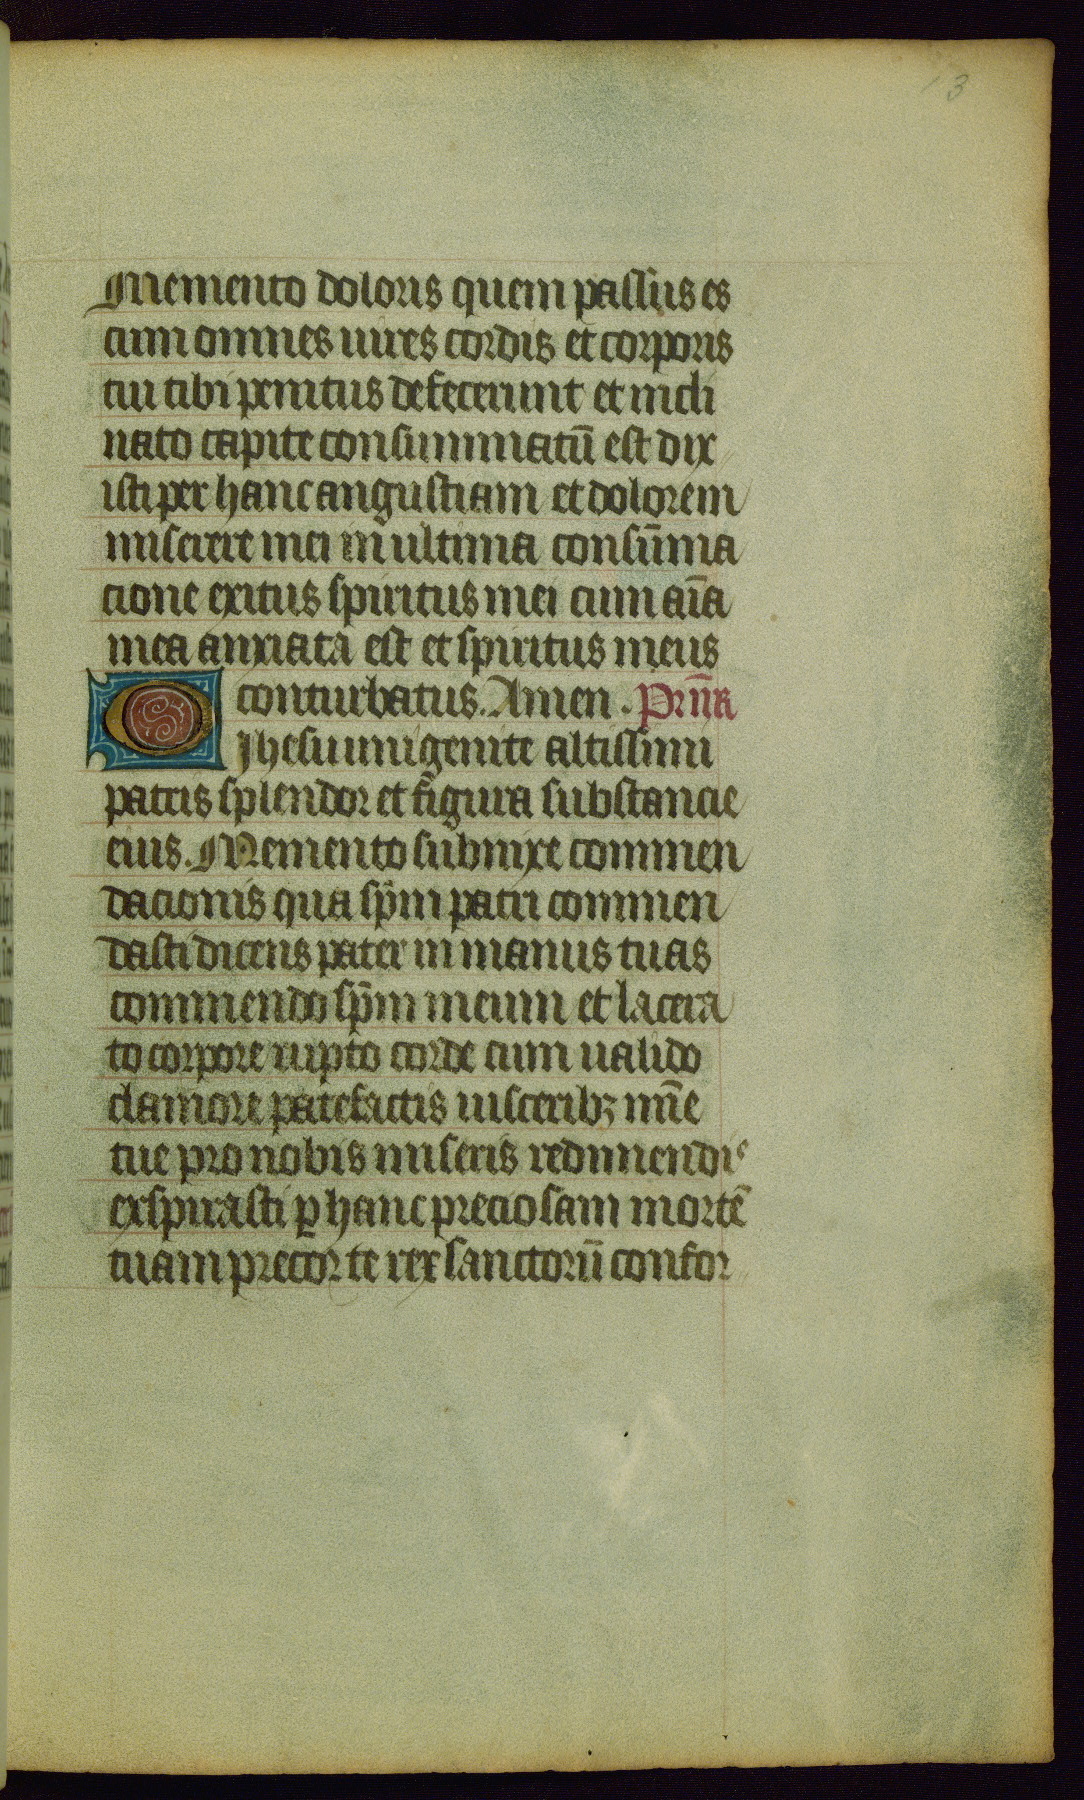 13
Memento doloris quem passus es
cum omnes uires cordis et corporis
tui tibi penitus defecerunt et incli
nato capite consummatū est dix
isti per hanc angustiam et dolorem
miserere mei in ultima consūma
cione exitus spiritus mei cum aīa
mea anxiata est et spiritus meus
conturbatus. Amen. Prīīa
O Jhesu unigenite altissimi
patris splendor et figura substancie
eius. Memento submixe commen
dacionis qua sp̄m patri commen
dasti dicens pater in manus tuas
commendo sp̄m meum et lacera
to corpore rupto corde cum ualido
clamore patefactis uisceribꝫ mīe
tue pro nobis miseris redimendis
exspirasti ꝑ hanc preciosam mortē
tuam precor te rex sanctorū confor